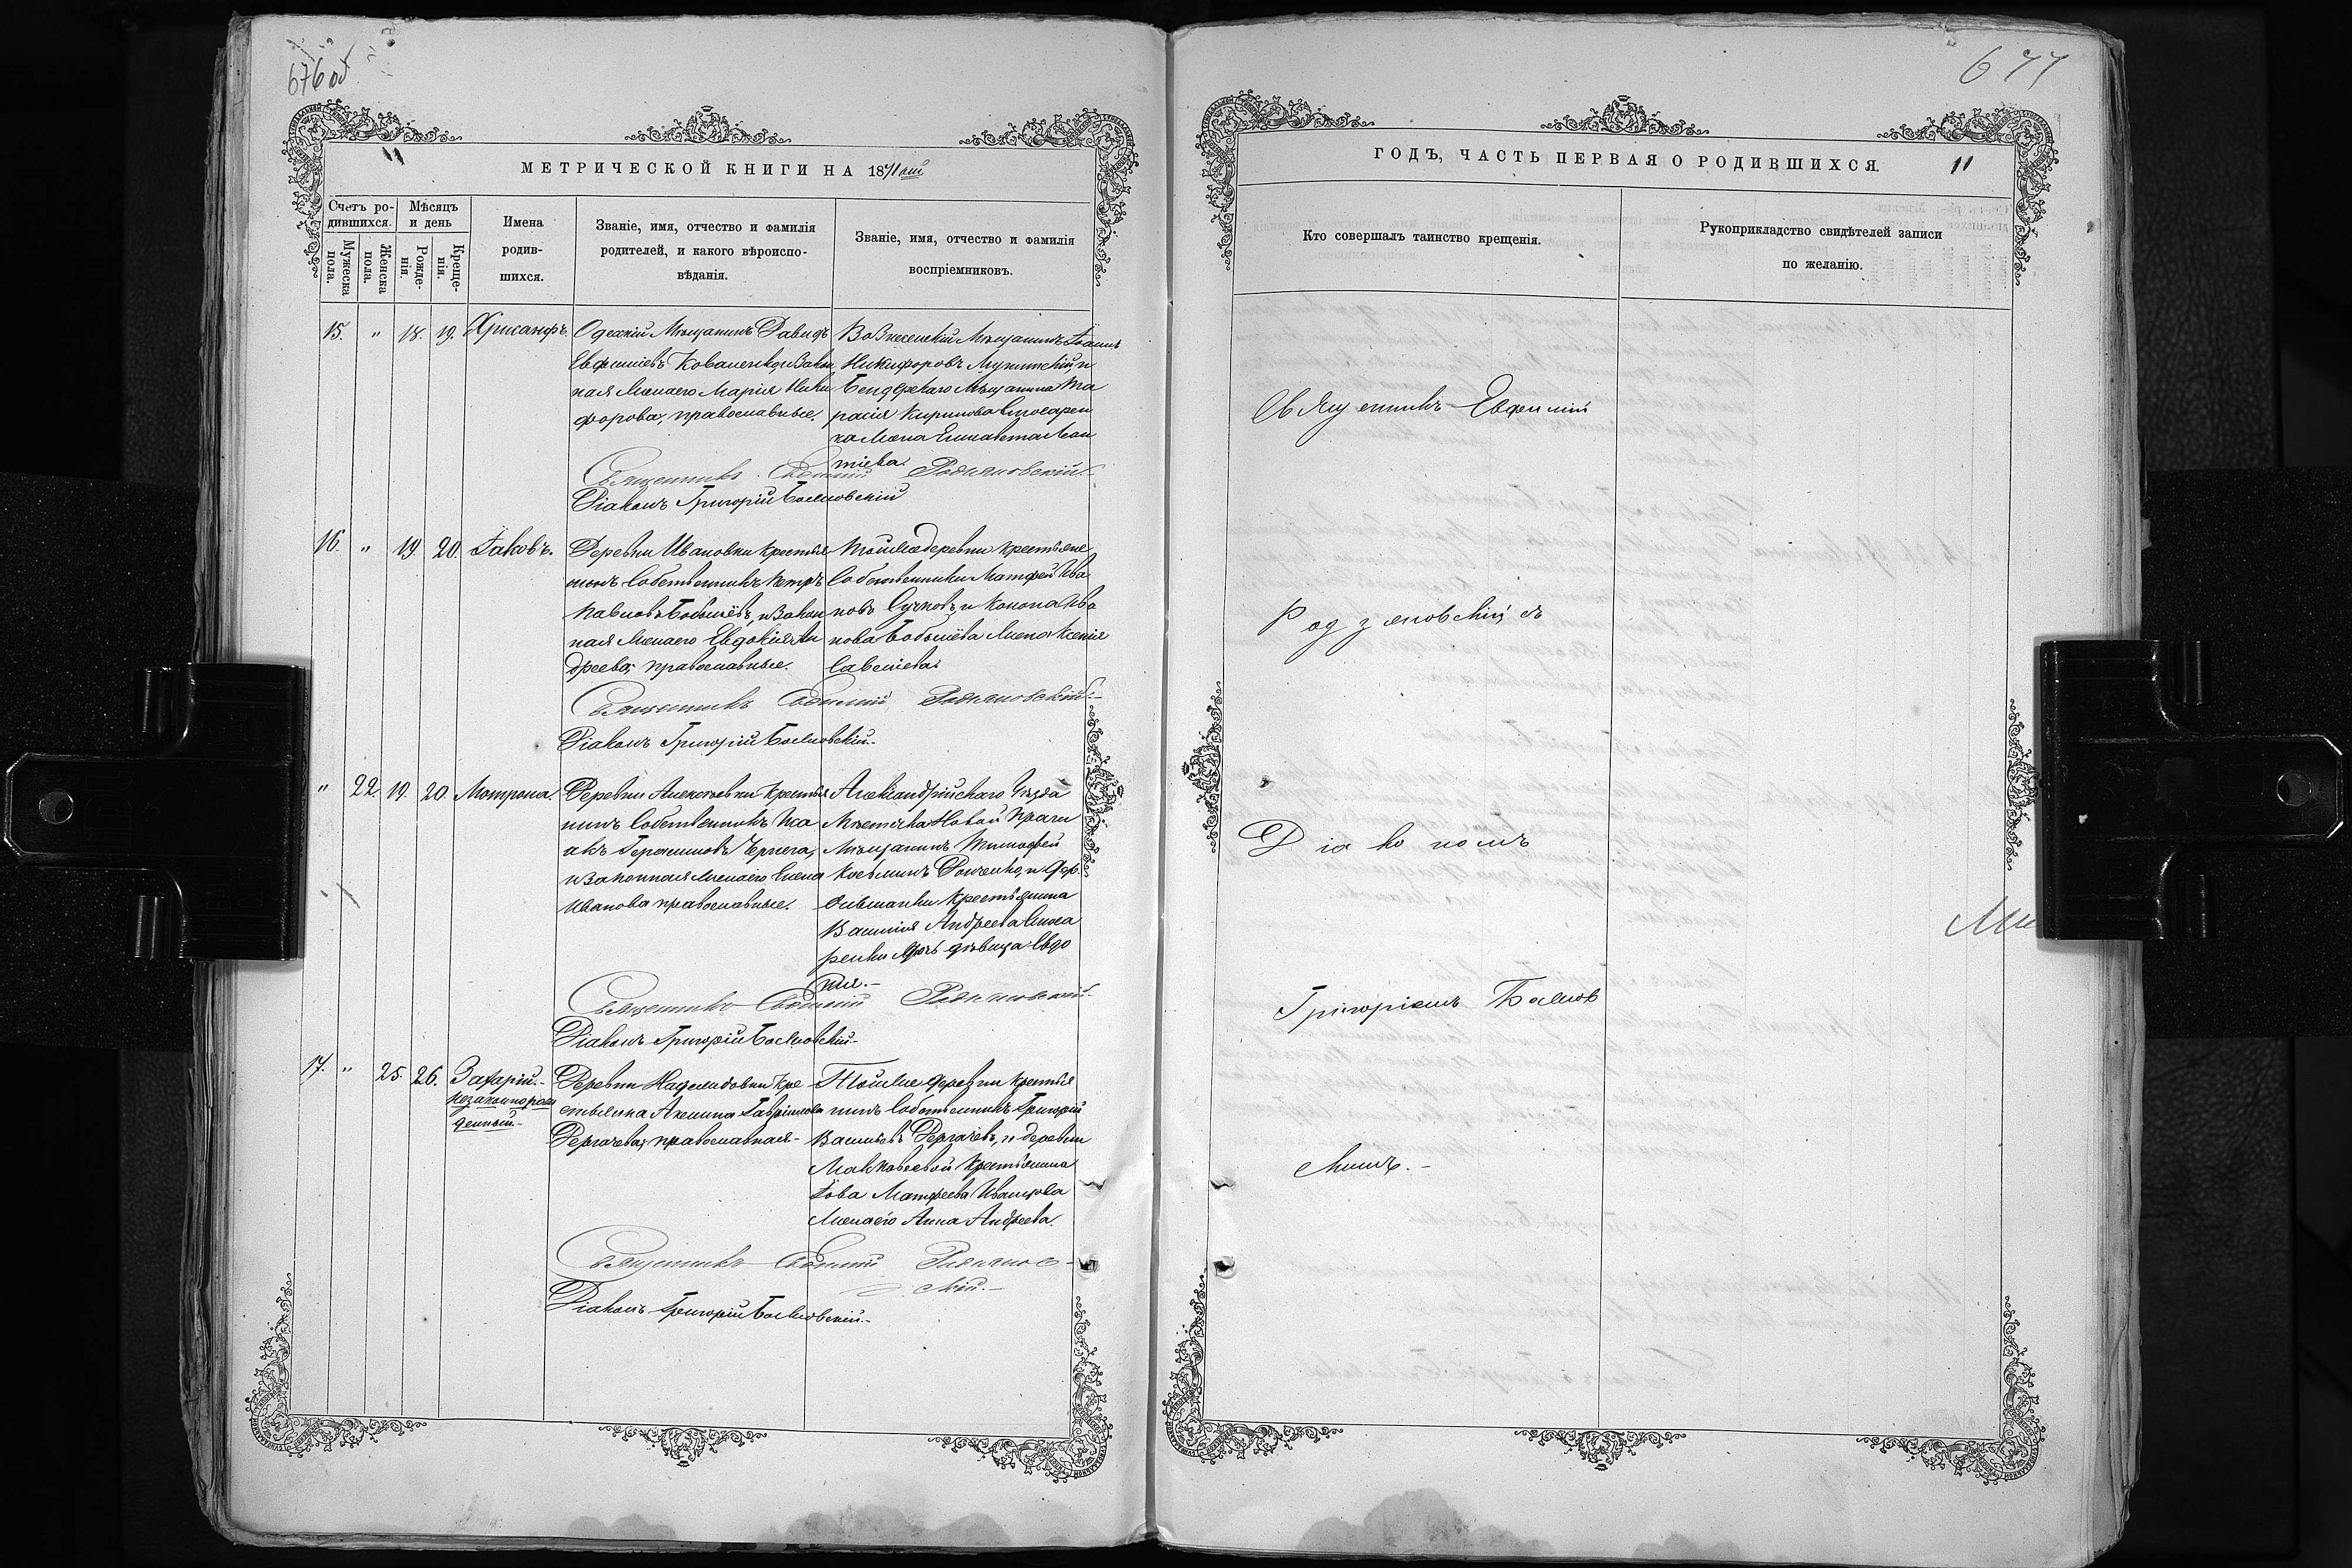 676 об
11
МЕТРИЧЕСКОЙ КНИГИ НА 1871 ый
Счетъ ро-
дившихся.
Мужеска пола.
Женска пола.
Мѣсяцъ
и день
Рожде-
нія.
Креще-
нія.
Имена
родив-
шихся.
Званіе, имя, отчество и фамилія
родителей, и какого вѣроиспо-
вѣданія.
Званіе, имя, отчество и фамилія
воспріемниковъ.
15. " 18. 19. Хрисанфъ.
Одескій Мѣщанинъ Давидъ
Евфиміевъ Коваленко, и Закон
ная Жена его Марія Ники
форова, православные.
Вознесенскій Мѣщанинъ Іоаннъ
Никифоровъ и
Бендерскаго Мѣщанина Та
расія Кирилова
жена Елисавета Леон
тіева.
Священникъ Евфимій Родзяновскій
Діаконъ Григорій Божковскій
16. " 19 20. Іаковъ.
Деревни Ивановки крестья
нинъ Собственникъ Петръ
Павловъ Бобылёвъ, и Закон
ная Жена его Евдокія Ан
дреева, православные.
Той же деревни крестьяне
Собственники Матфей Ива
новъ Сучковъ, и Конона Ива
нова Бобылёва Жена Ксенія
Савеліева.
Священникъ Евфимій Родзяновскій
Діаконъ Григорій Божковскій.
" 22. 19. 20 Мотрона.
Деревни Алексѣевки Крестья
нинъ Собственникъ Иса
акъ Герасимовъ Чернега,
и законная жена его Елена
Иванова православные.
Александрійскаго Уѣзда
Мѣстечка Новой Праги
Мѣщанинъ Тимофей
Косьминъ и дер.
крестьянина
Василія Андреева
дочь дѣвица Евдо
кія.-
Священникъ Евфимій Родзяновскій
Діаконъ Григорій Божковскій-
17. " 25. 26. Захарій.-
незаконнорож
денный.-
Деревни кре
стьянка Акилина Гавріилова
Дергачева, православная-
Той же деревни крестья
нинъ Собственникъ Григорій
Васильевъ Дергачёвъ, и деревни
Маковеевой крестьянина
Іова Матфеева Иванцова
Жена его Анна Андреева.
Священникъ Евфимій Родзянов-
скій.-
Діаконъ Григорій Божковскій.-
677
ГОДЪ, ЧАСТЬ ПЕРВАЯ О РОДИВШИХСЯ. 11
Кто совершалъ таинство крещенія.
Рукоприкладство свидѣтелей записи
по желанію.
Священникъ Евфимій
Родзяновскій съ
Діакономъ
Григоріемъ Божков
скимъ.-